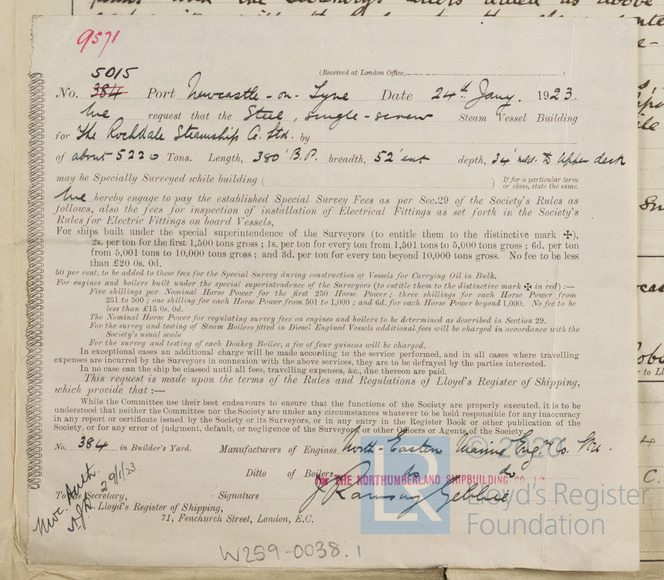 9571
(Received at London Office, )
5015
No. 384 Port Newcastle-on-Tyne Date 24th Jany. 1923.
We request that the Steel, single-screw Steam Vessel Building
for The Rockdale Steamship Co. Ltd. by
of about 5220 Tons. Length, 380' B.P. breadth, 52' ext depth, 34' mld. to upper deck
may be Specially Surveyed while building ( ) If for a particular term or class, state the same.
We hereby engage to pay the established Special Survey Fees as per Sec.29 of the Society's Rules as
follows, also the fees for inspection of installation of Electrical Fittings as set forth in the Society's
Rules for Electric Fittings on board Vessels,
For ships built under the special superintendence of the Surveyors (to entitle them to the distinctive mark ✠),
2s. per ton for the first 1,500 tons gross ; 1s. per for every ton from 1,501 tons to 5,000 tons gross ; 6d. per ton
from 5,001 tons to 10,000 tons gross ; and 3d. per ton for every ton beyond 10,000 tons gross. No fee to be less
than £20 0s. 0d.
50 per cent. to be added to these fees for the Special Survey during construction of Vessels for Carrying Oil in Bulk.
For engines and boilers built under the special superintendence of the Surveyors (to entitle them to the distinctive mark ✠ in red) :—
Five shillings per Nominal Horse Power for the first 250 Horse Power ; three shillings for each Horse Power from
251 to 500 ; one shilling for each Horse Power from 501 to 1,000 ; and 6d. for each Horse Power beyond 1,000. No fee to be
less than £15 0s. 0d.
The Nominal Horse Power for regulating survey fees on engines and boilers to be determined as described in Section 29.
For the survey and testing of Steam Boilers fitted in Diesel Engined Vessels additional fees will be charged in accordance with the
Society's usual scale
For the survey and testing of each Donkey Boiler, a fee of four guineas will be charged.
In exceptional cases an additional charge will be made according to the service performed, and in all cases where travelling
expenses are incurred by the Surveyors in connexion with the above services, they are to be defrayed by the parties interested.
In no case can the ship be classed until all fees, travelling expenses, &c., due thereon are paid.
This request is made upon the terms of the Rules and Regulations of Lloyd's Register of Shipping,
which provide that :—
While the Committee use their best endeavours to ensure that the functions of the Society are properly executed, it is to be
understood that neither the Committee nor the Society are under any circumstances whatever to be held responsible for any inaccuracy
in any report or certificate issued by the Society or its Surveyors, or in any entry in the Register Book or other publication of the
Society, or for any error of judgment, default, or negligence of the Surveyors or other Officers or Agents of the Society.
No. 384 in Builder's Yard. Manufacturers of Engines, North-Eastern Marine Eng. Co. Ltd.
Ditto of Boilers do do
THE NORTHUMBERLAND SHIPBUILDING CO
To the Secretary, Signature
Lloyd's Register of Shipping,
71, Fenchurch Street, London, E.C.
29/1/23
W259-0038.1
© 2020
LR Lloyd's Register
Foundation